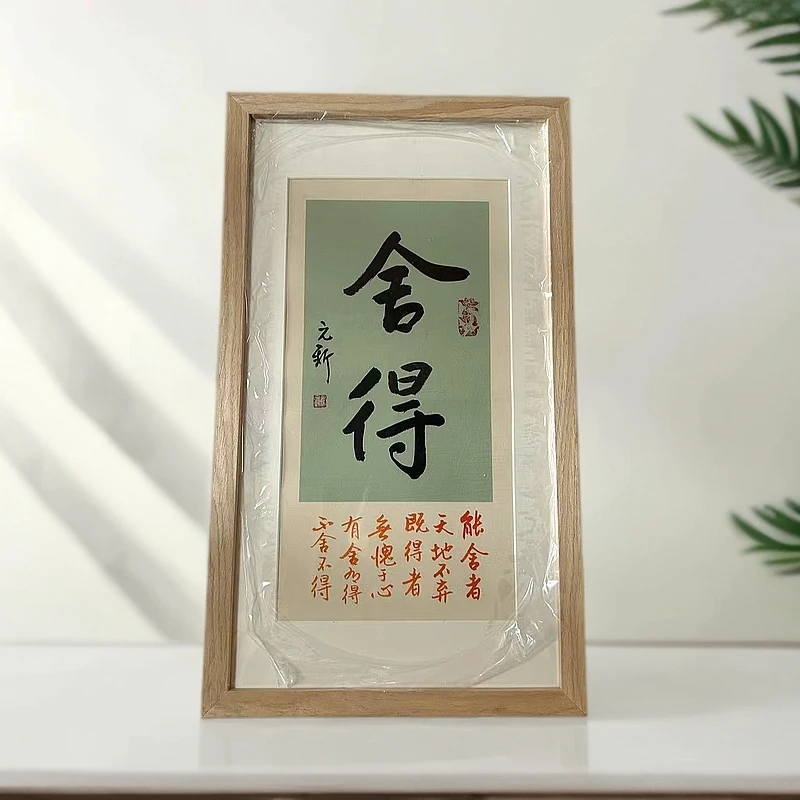 舍得
元新
能舍者
天地不弃
既得者
無愧于心
有舍得
不舍不得